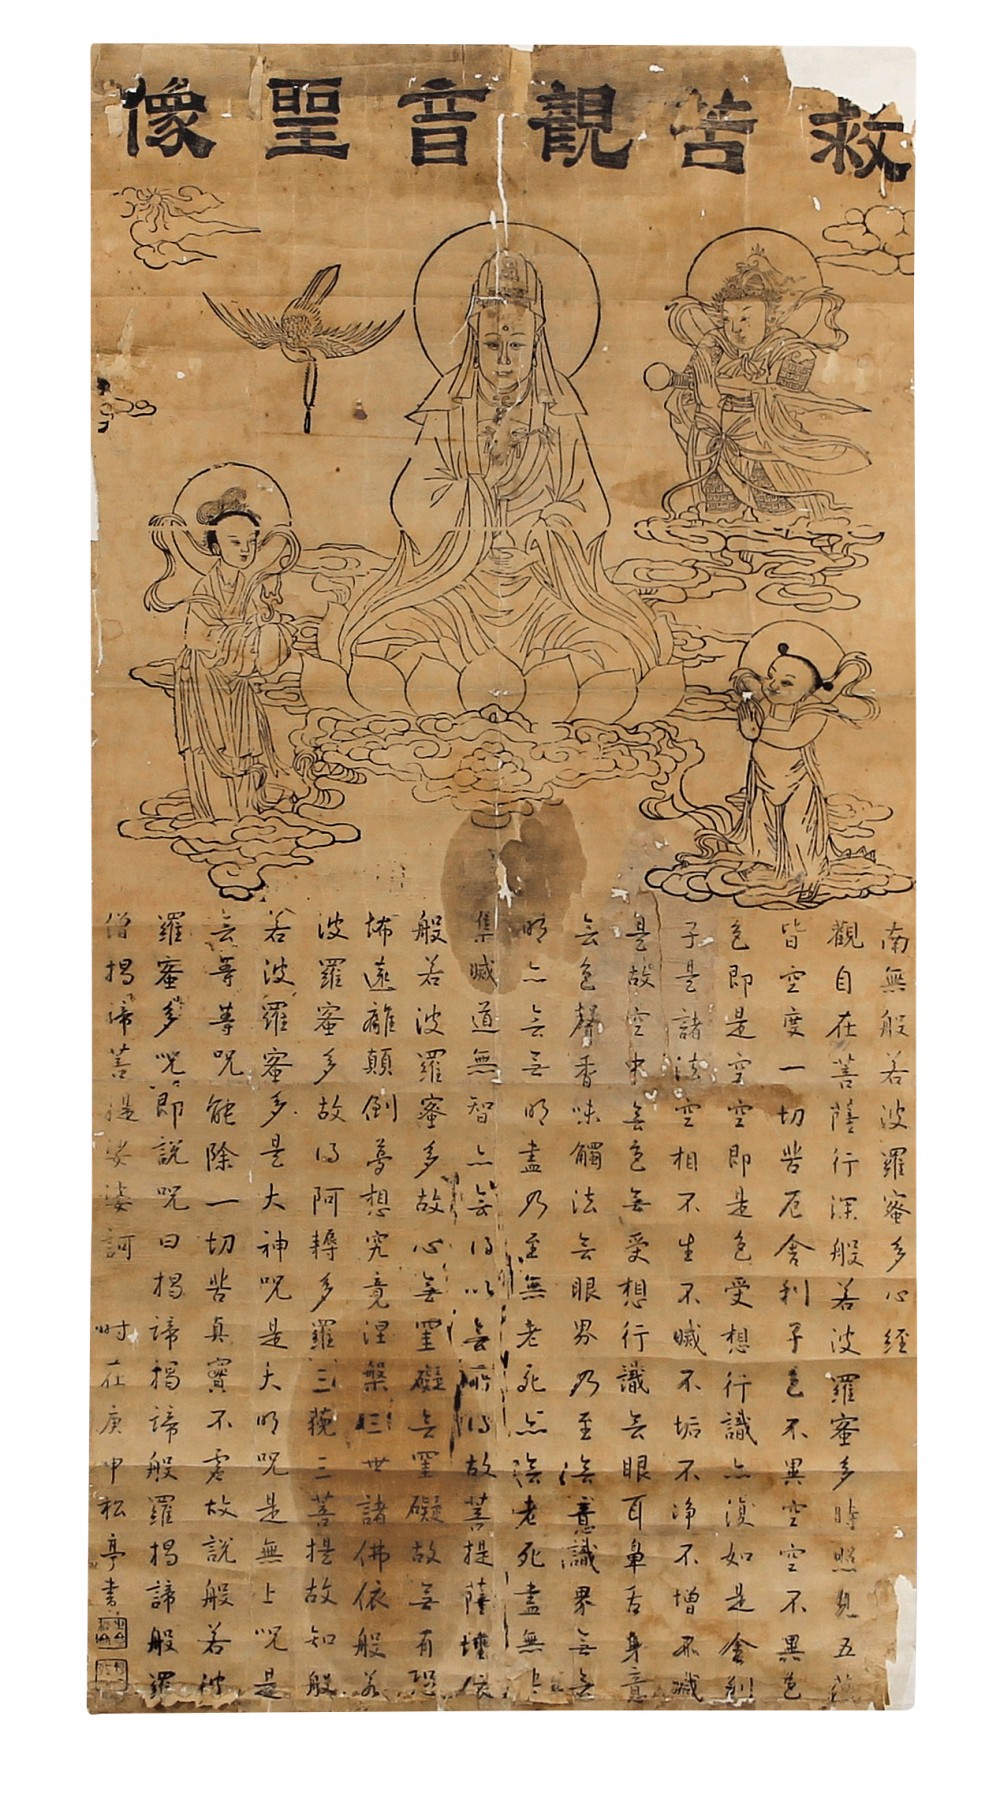 救苦觀音聖像
南無般若波羅蜜多心經
觀自在菩薩行深般若波羅蜜多時照見五蘊
皆空度一切苦厄舍利子色不異空空不異色
色即是空空即是色受想行識亦復如是舍利
子是諸法空相不生不滅不垢不净不增不減
是故空中無色無受想行識無眼耳鼻舌身意
無色聲香味觸法無眼界乃至無意識界無無
明亦無無明盡乃至無老死亦無老死盡無
集滅道無智亦無得以無所得故菩提薩埵依
般若波羅蜜多故心無罣礙無罣礙故無有恐
怖遠離顛倒夢想究竟涅槃三世諸佛依般若
波羅蜜多故得阿耨多羅三藐三菩提故知般
若波羅蜜多是大神呪是大明呪是無上呪是
無等等呪能除一切苦真實不虛故說般若波
羅蜜多呪即說呪曰揭諦揭諦般羅揭諦般羅
僧揭諦菩提娑婆訶 時在庚申松亭書